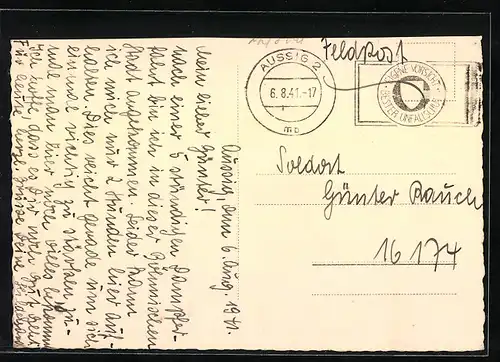 Feldpost
AUSSIG 2
6.8.41.-17
mb
EIGENE VORSICHT
BESTER UNFALLSCHUTZ
Soldat
Günter Rauch
16 174
Aussig, den 6. Aug. 1941.
Mein lieber Günter!
Nach einer 5 stündigen Dampfer-
fahrt bin ich in dieser böhmischen
Stadt angekommen. Leider kann
ich mich nur 2 Stunden hier auf-
halten. Dies reicht gerade um sich
mal richtig zu stärken,
man hier noch alles bekommt.
Ich hoffe dass es Dir noch gut geht
Für heute herzl. Grüsse Deine